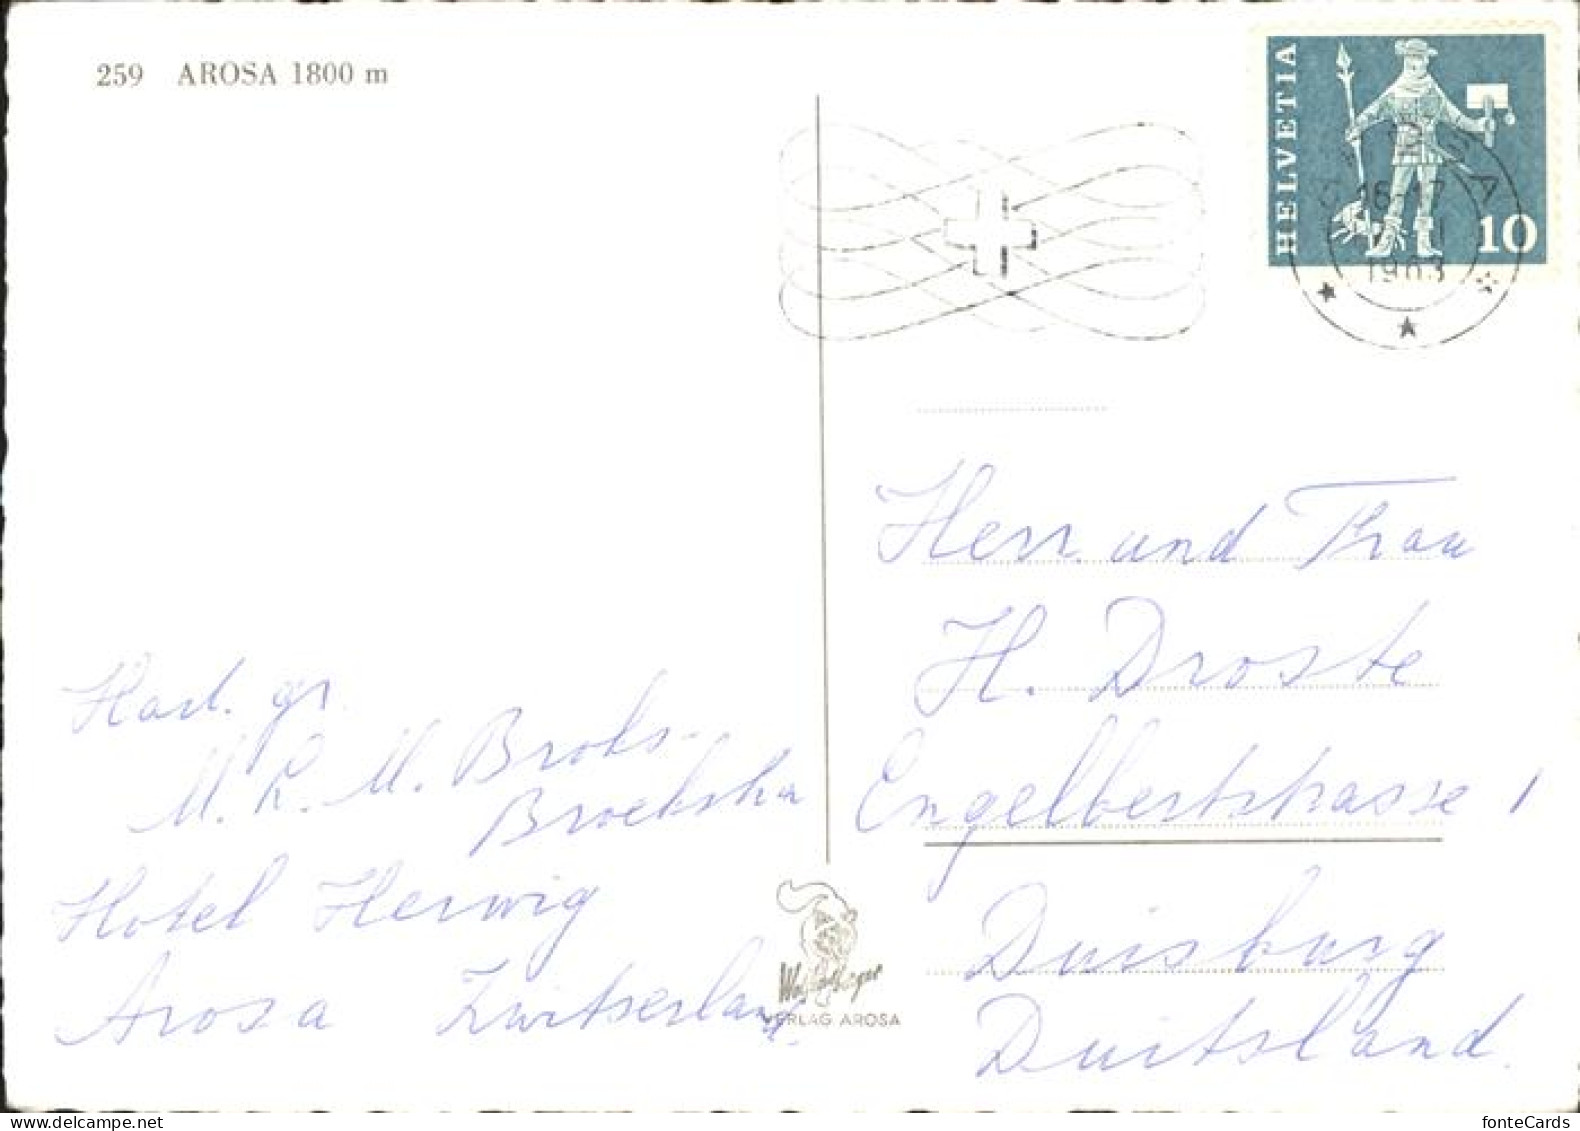 259 AROSA 1800 m
HELVETIA
10
AROSA
16-17
1963
Hart. gr.
M. R. M. Broks-
Hotel Herwig
Arosa Zwitserland.
Herr und Frau
H. Droste
Engelbertstrasse 1
Duisburg
Duitsland.
VERLAG AROSA
fonteCards